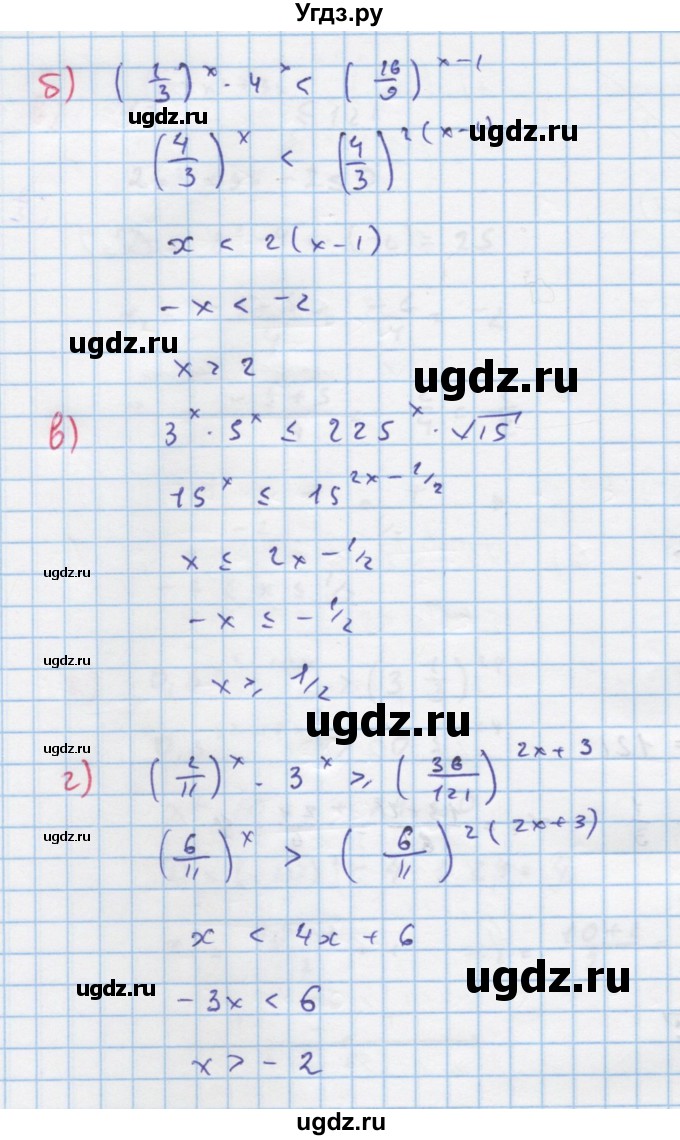 Угдз.ру
б) (1/3)^x · 4^x < (16/9)^(x-1)
ugdz.ru
ugdz.ru
(4/3)^x < (4/3)^(2(x-1))
x < 2(x-1)
-x < -2
ugdz.ru
x > 2
ugdz.ru
в) 3^x · 5^x ≤ 225^x · √15
15^x ≤ 15^(2x-1/2)
x ≤ 2x - 1/2
ugdz.ru
-x ≤ -1/2
ugdz.ru
x ≥ 1/2
ugdz.ru
ugdz.ru
г) (2/11)^x · 3^x ≥ (36/121)^(2x+3)
ugdz.ru
(6/11)^x > (6/11)^(2(2x+3))
x < 4x + 6
ugdz.ru
ugdz.ru
-3x < 6
x > -2
ugdz.ru